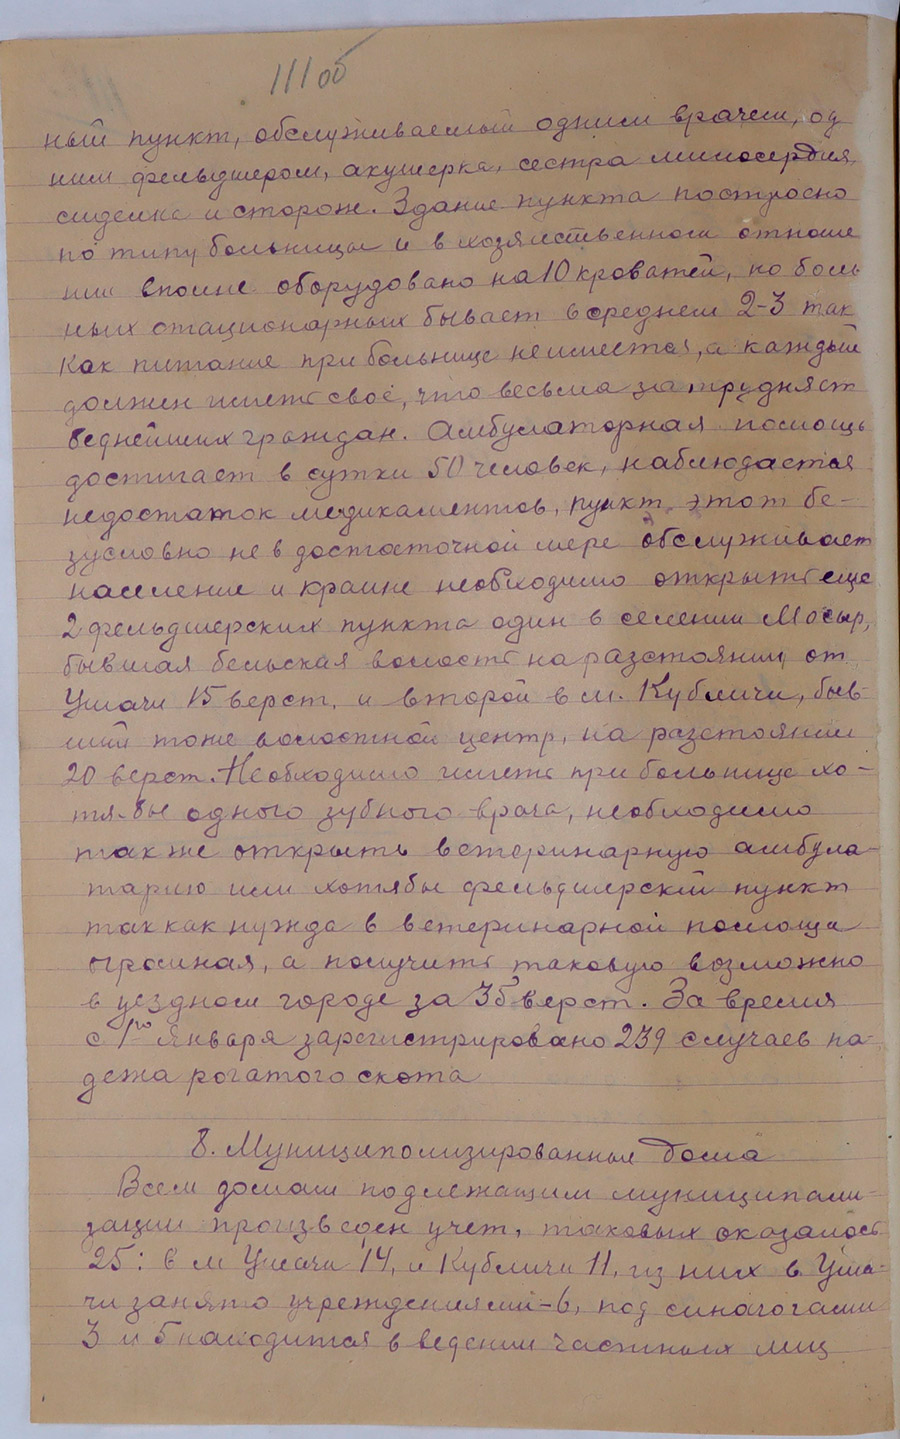 111об
ный пункт, обслуживаемый одним врачем, од
ним фельдшером, акушерка, сестра милосердия,
сиделка и сторож. Здание пункта построено
по типу больницы и в хозяйственном отноше
нии вполне оборудовано на 10 кроватей, но боль
ных стационарных бывает в среднем 2-3 так
как питание при больнице неимеется, а каждый
должен иметь своё, что весьма затрудняет
беднейших граждан. Амбулаторная помощь
достигает в сутки 50 человек, наблюдается
недостаток медикаментов, пункт этот бе-
зусловно не в достаточной мере обслуживает
население и крайне необходимо открыть еще
2 фельдшерских пункта один в селении Мосыр,
бывшая бельская волость на разстоянии от
Ушачи 15 верст, и второй в м. Кубличи, быв-
ший тоже волостной центр, на разстоянии
20 верст. Необходимо иметь при больнице хо-
тя-бы одного зубного врача, необходимо
также открыть ветеринарную амбула-
тарию или хотябы фельдшерский пункт
так как нужда в ветеринарной помощи
огромная, а получить таковую возможно
в уездном городе за 35 верст. За время
с 1го Января зарегистрировано 239 случаев па-
дежа рогатого скота
8. Муниципализированные дома
Всем домам подлежащим муниципали-
зации произведен учет, таковых оказалось
25: в м Ушачи 14, и Кубличи 11, из них в Уша-
чи занято учреждениями-6, под синагогами
3 и 5 находится в ведении частных лиц